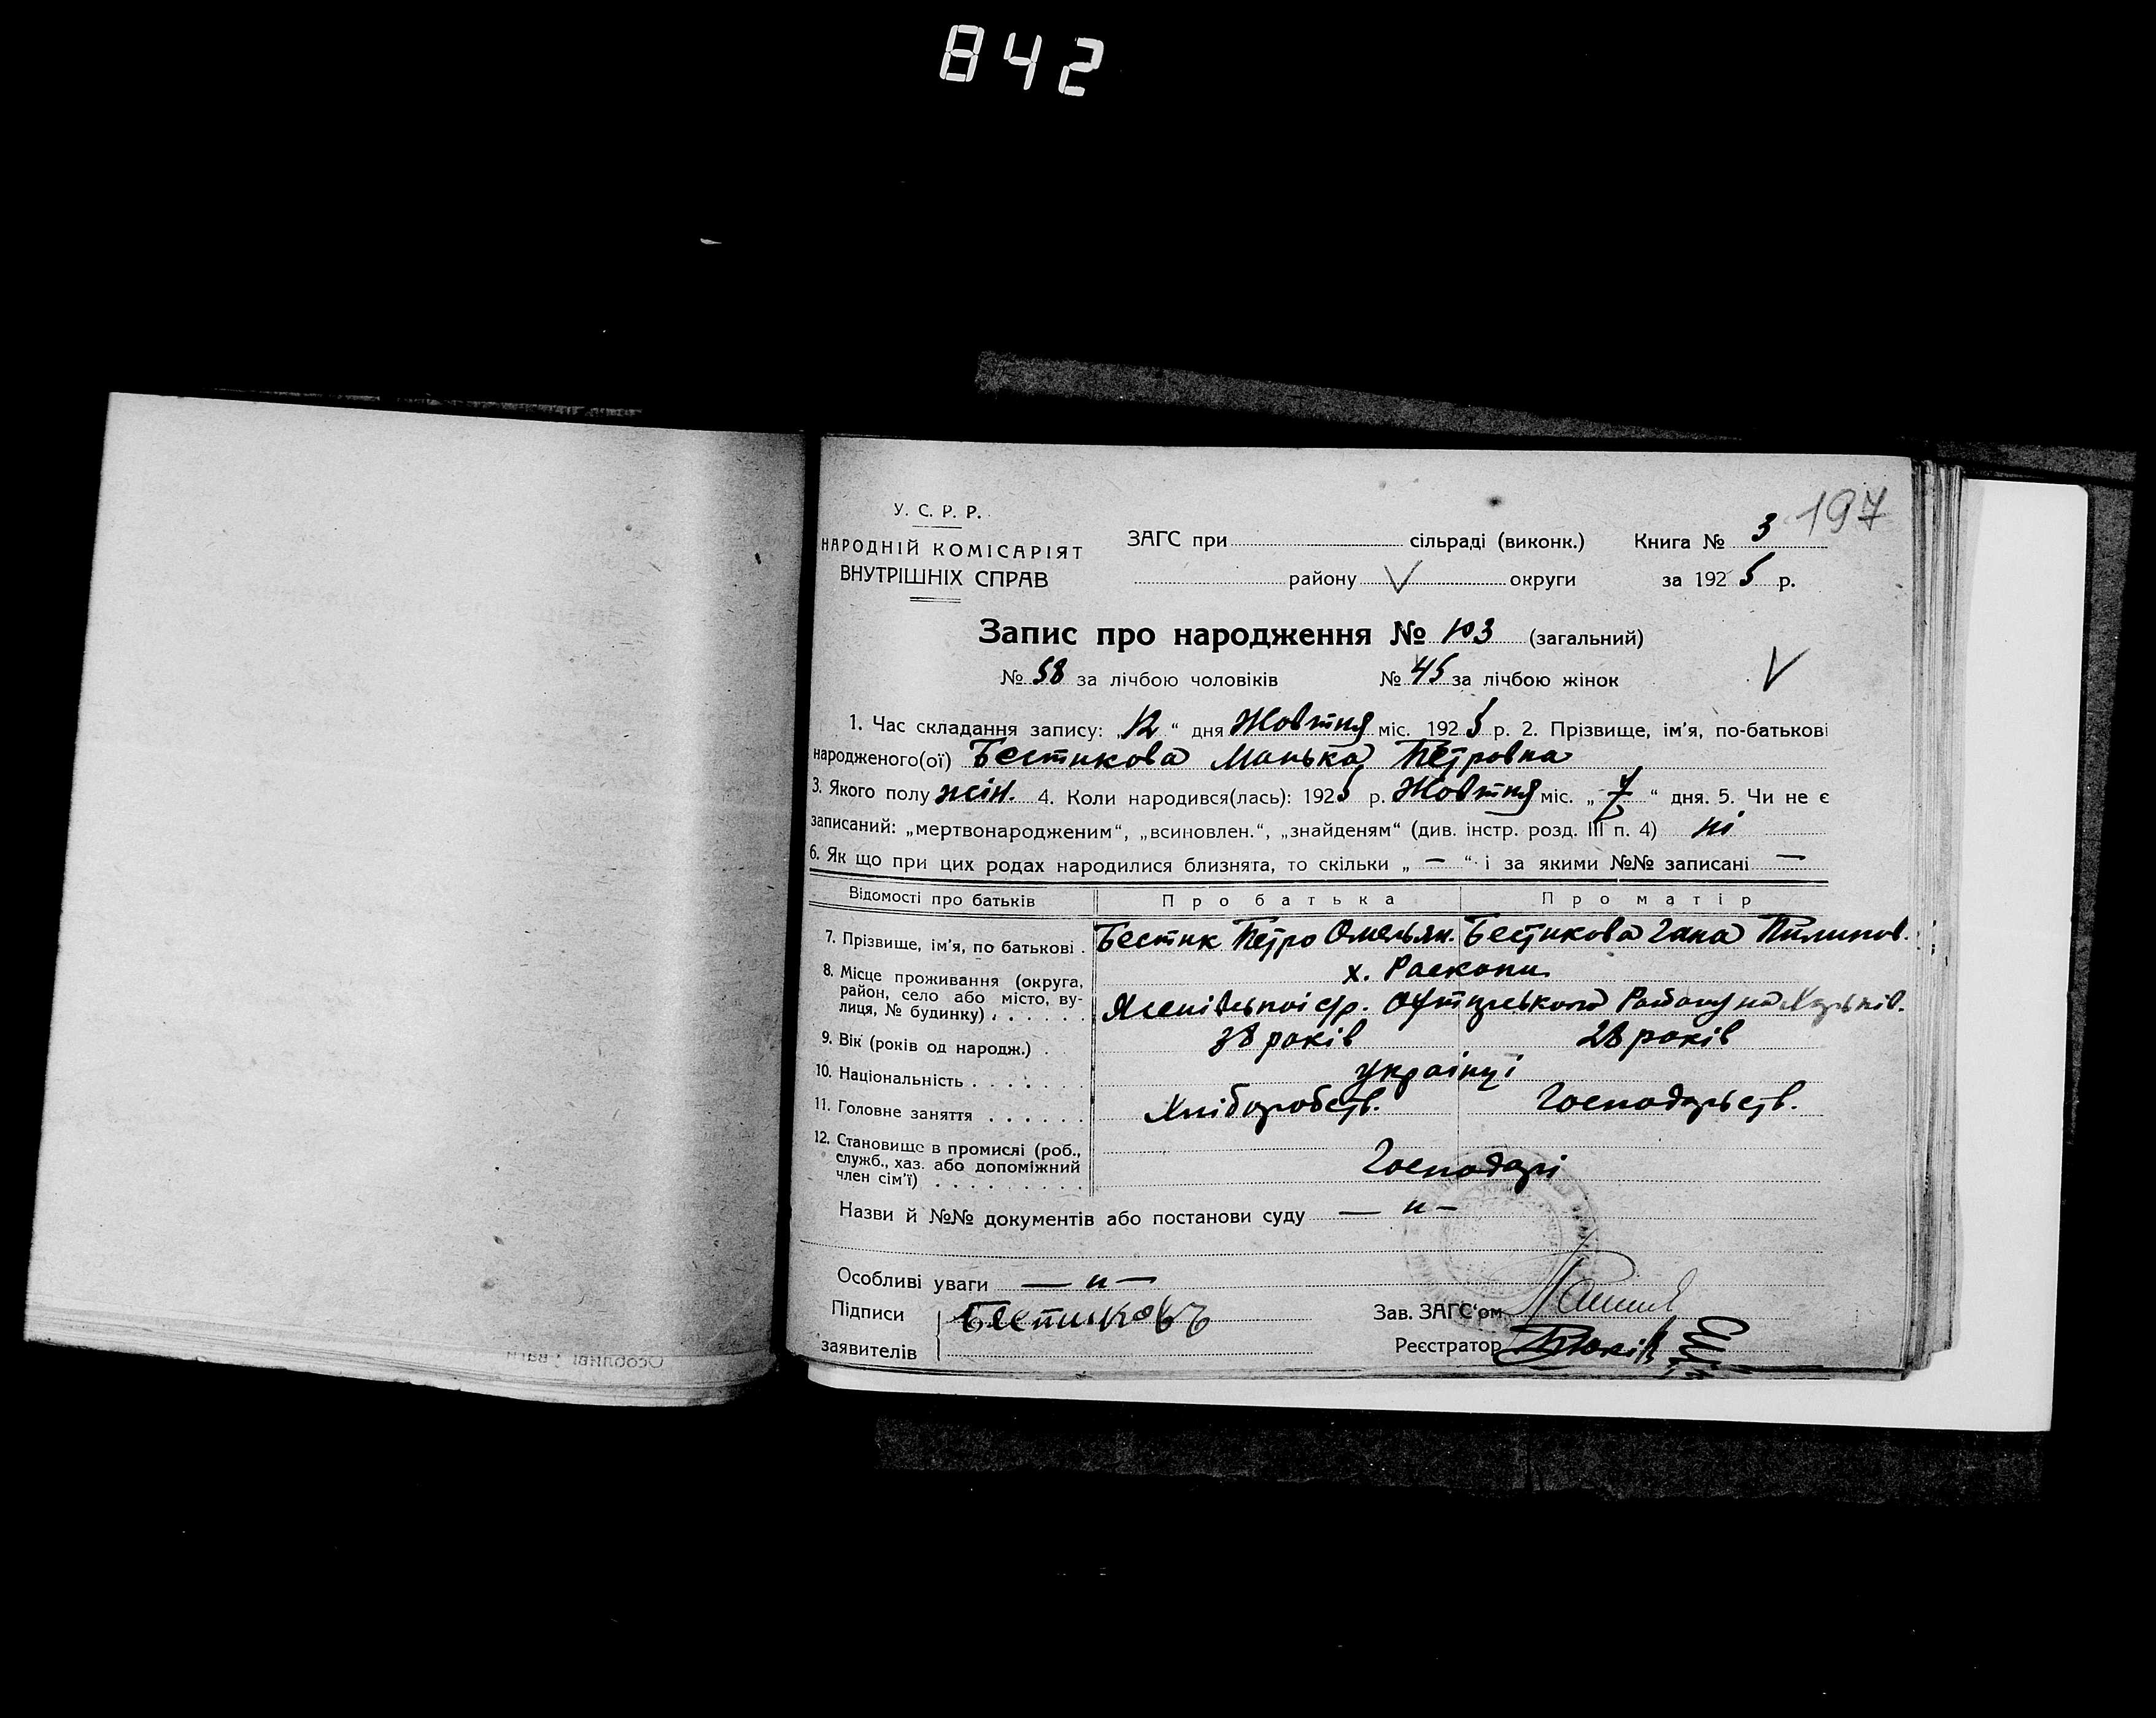 842
197
У. С. Р. Р.
НАРОДНІЙ КОМІСАРІЯТ
ВНУТРІШНІХ СПРАВ
ЗАГС при сільраді (виконк.) Книга № 3
району V округи за 1925 р.
Запис про народження № 103 (загальний)
№ 58 за лічбою чоловіків № 45 за лічбою жінок V
1. Час складання запису: „12“ дня Жовтня міс. 1925 р. 2. Прізвище, ім'я, по-батькові
народженого(ої) Бестикова Манька Петровна
3. Якого полу жін. 4. Коли народився(лась): 1925 р. Жовтня міс. „7“ дня. 5. Чи не є
записаний: „мертвонародженим“, „всиновлен.“, „знайденям“ (див. інстр. розд. III п. 4) ні
6. Як що при цих родах народилися близнята, то скільки „ — “ і за якими №№ записані —
Відомості про батьків Про батька Про матір
7. Прізвище, ім'я, по батькові . Бестик Петро Омельян. Бестикова Гана Пилипов.
8. Місце проживання (округа, х. Раскопи
район, село або місто, ву-
лиця, № будинку) . . . . . с/р. Району на
9. Вік (років од народж.) . 38 років 28 років
10. Національність . . . . . . . українці
11. Головне заняття . . . . . . Хлiборобств. Господарств.
12. Становище в промислі (роб.,
служб., хаз. або допоміжний Господарі
член сім'ї) . . . . . . . . .
Назви й №№ документів або постанови суду — „ —
Особливі уваги — „ —
Підписи Бестиковъ Зав. ЗАГС'ом
заявителів Реєстратор
Особливі уваги